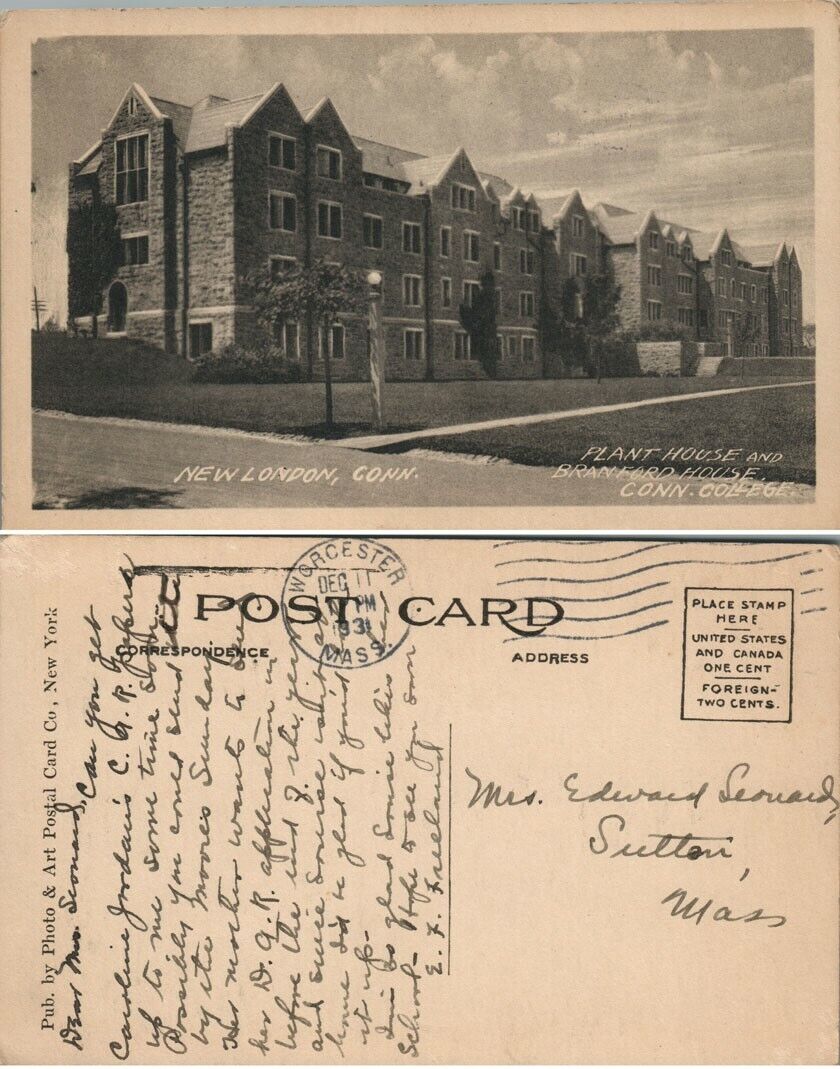 NEW LONDON, CONN.
PLANT HOUSE AND
BRANFORD HOUSE,
CONN. COLLEGE.
POST CARD
CORRESPONDENCE
ADDRESS
WORCESTER
DEC 11
PM
1931
MASS.
PLACE STAMP
HERE
UNITED STATES
AND CANADA
ONE CENT
FOREIGN-
TWO CENTS.
Pub. by Photo & Art Postal Card Co., New York
Dear Mrs. Leonard, Can you get
Caroline Jordan's C. A. R. papers
up to me some time soon.
Possibly you could send
by the Moores Sunday.
Her mother wants to
her D. A. R. application in
before the end of the year
and since Louise isn't
home I'd be glad if you'd
it up-
I'm so glad Louise likes her
School- Hope to see you soon
E. F. Freeland
Mrs. Edward Leonard,
Sutton,
Mass